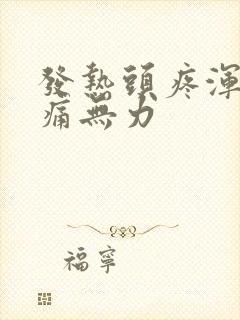 發熱頭疼渾
痛無力
福寧